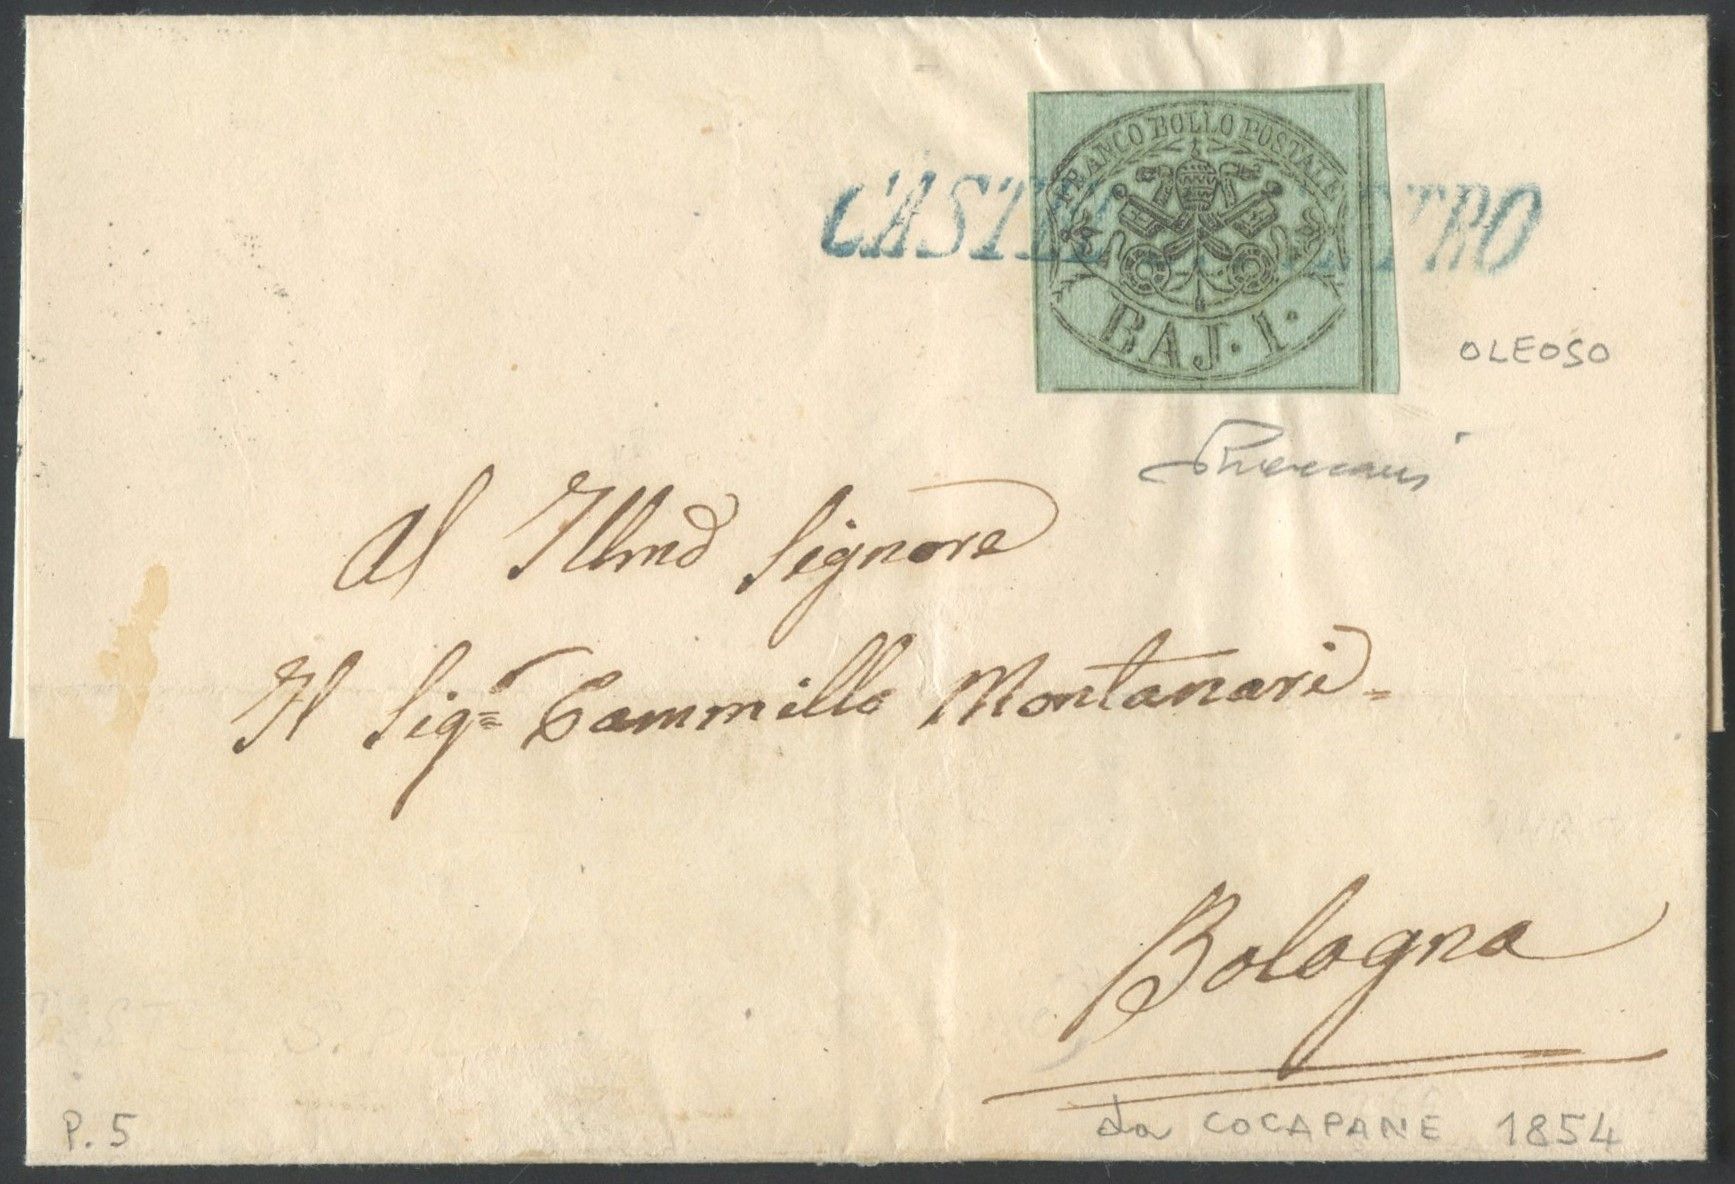 FRANCO BOLLO POSTALE
CASTEL TRO
BAJ. 1.
OLEOSO
Al Illmo Signore
Il Sigr Cammillo Montanari =
Bologna
P. 5
da COCAPANE 1854